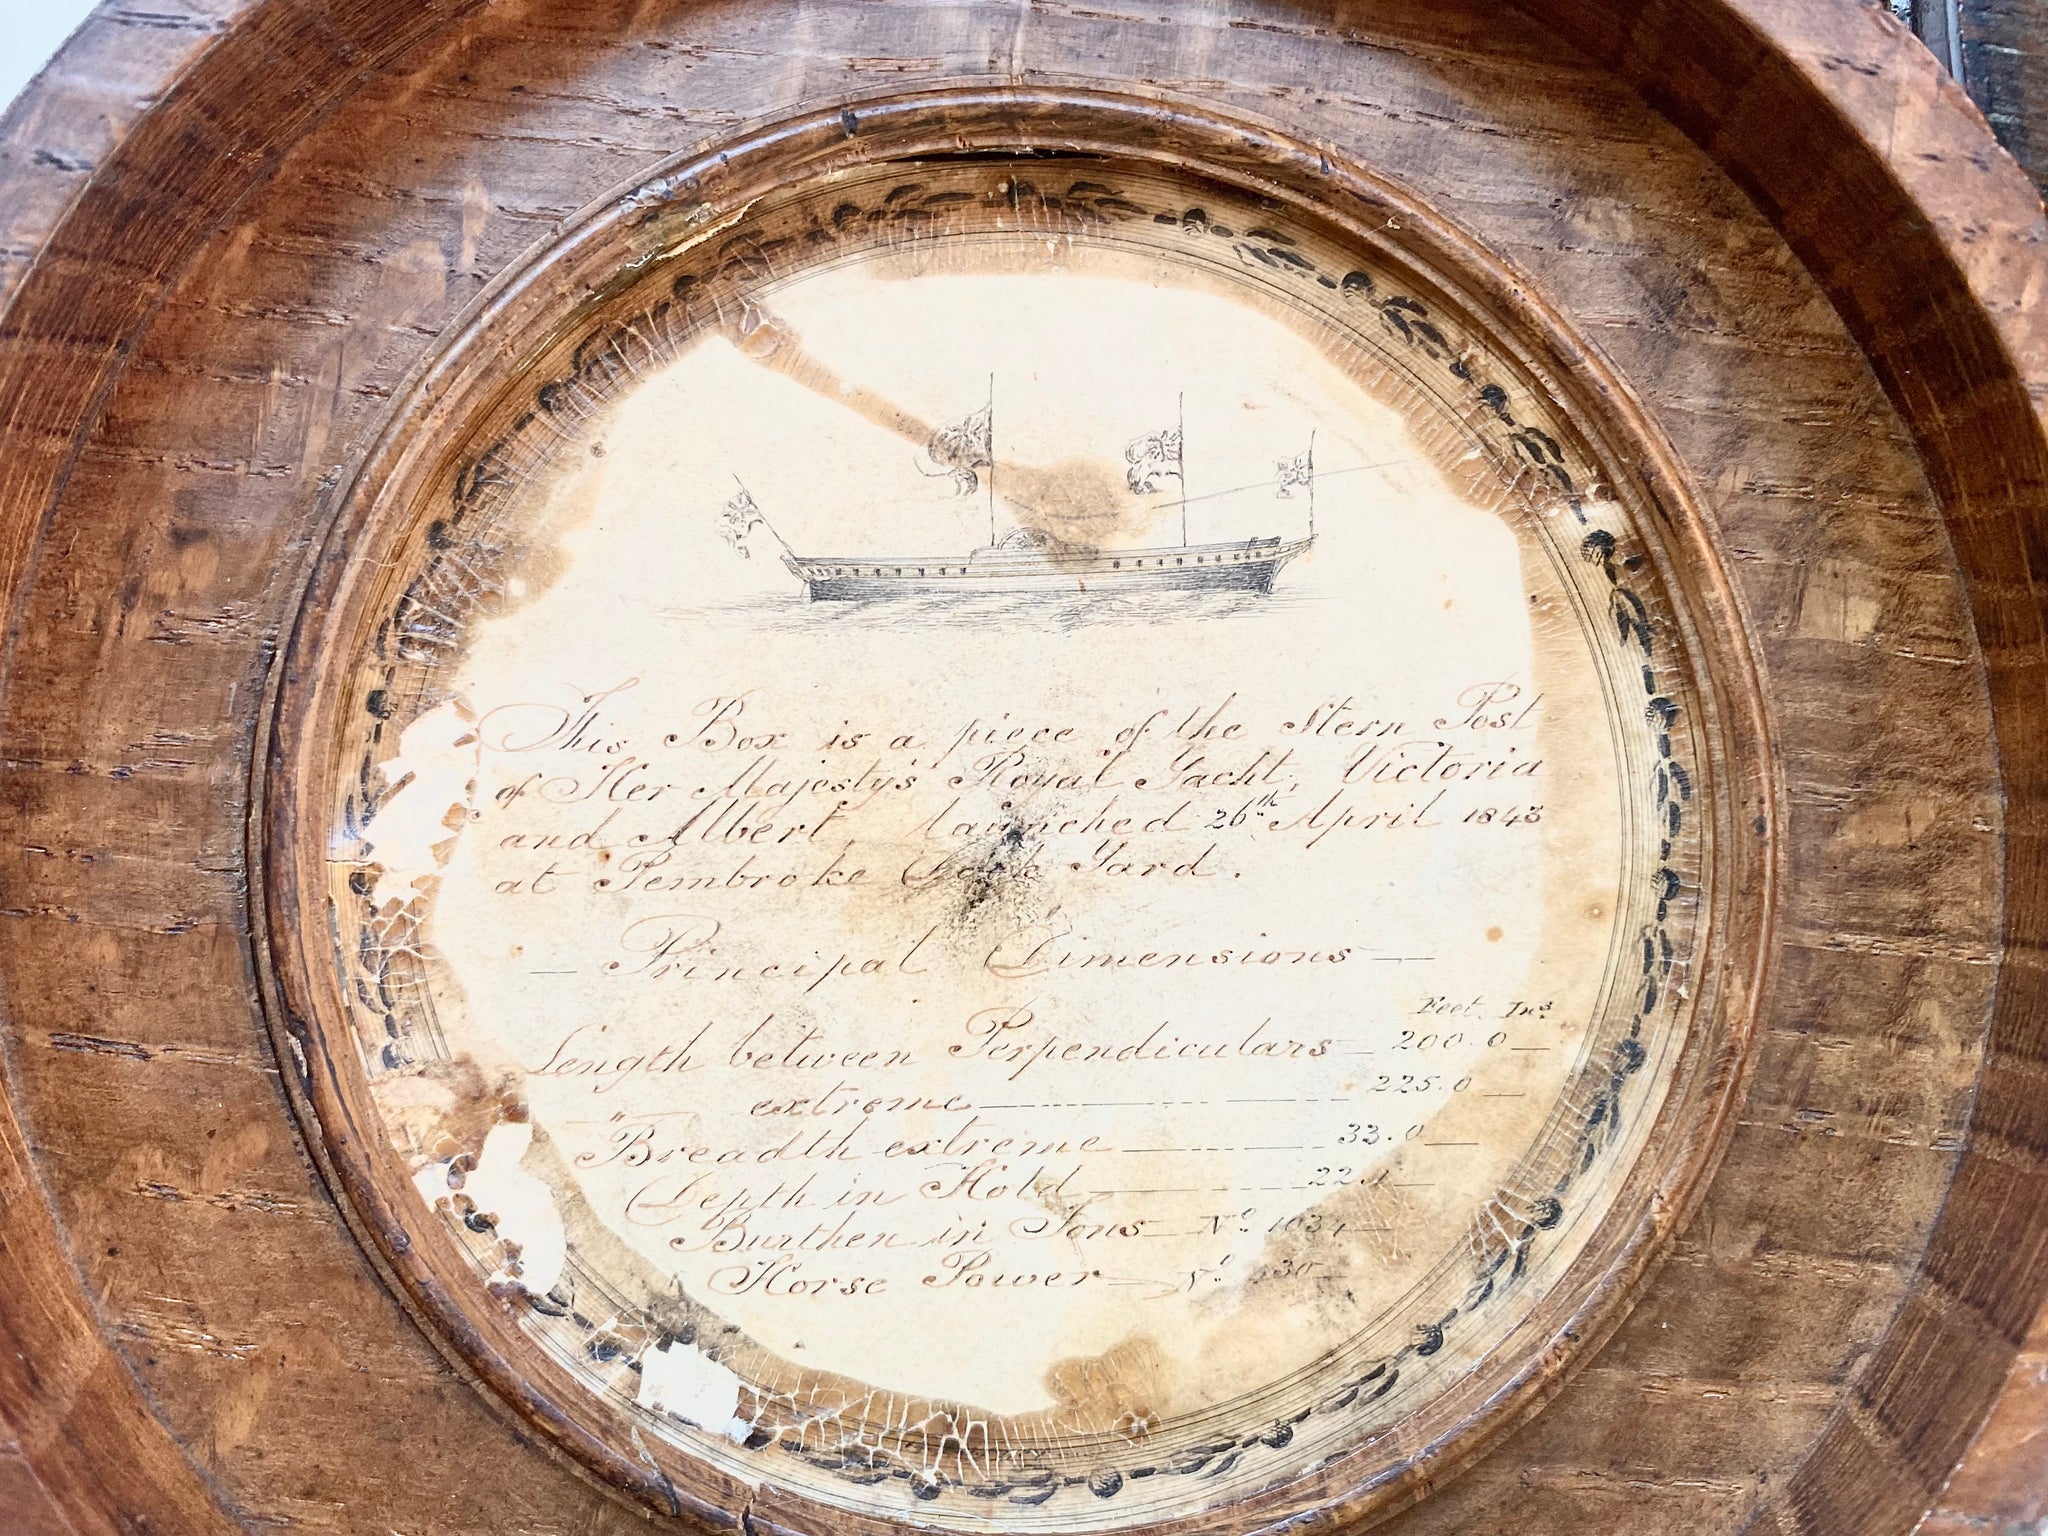 This Box is a piece of the Stern Post
of Her Majesty's Royal Yacht, Victoria
and Albert, launched 26th April 1843
at Pembroke Dock Yard.
— Principal Dimensions —
Feet. Ins
Length between Perpendiculars — 200.0 —
" — extreme — 225.0 —
Breadth extreme — 33.0 —
Depth in Hold — 22.1 —
Burthen in Tons — No 1034 —
Horse Power — No